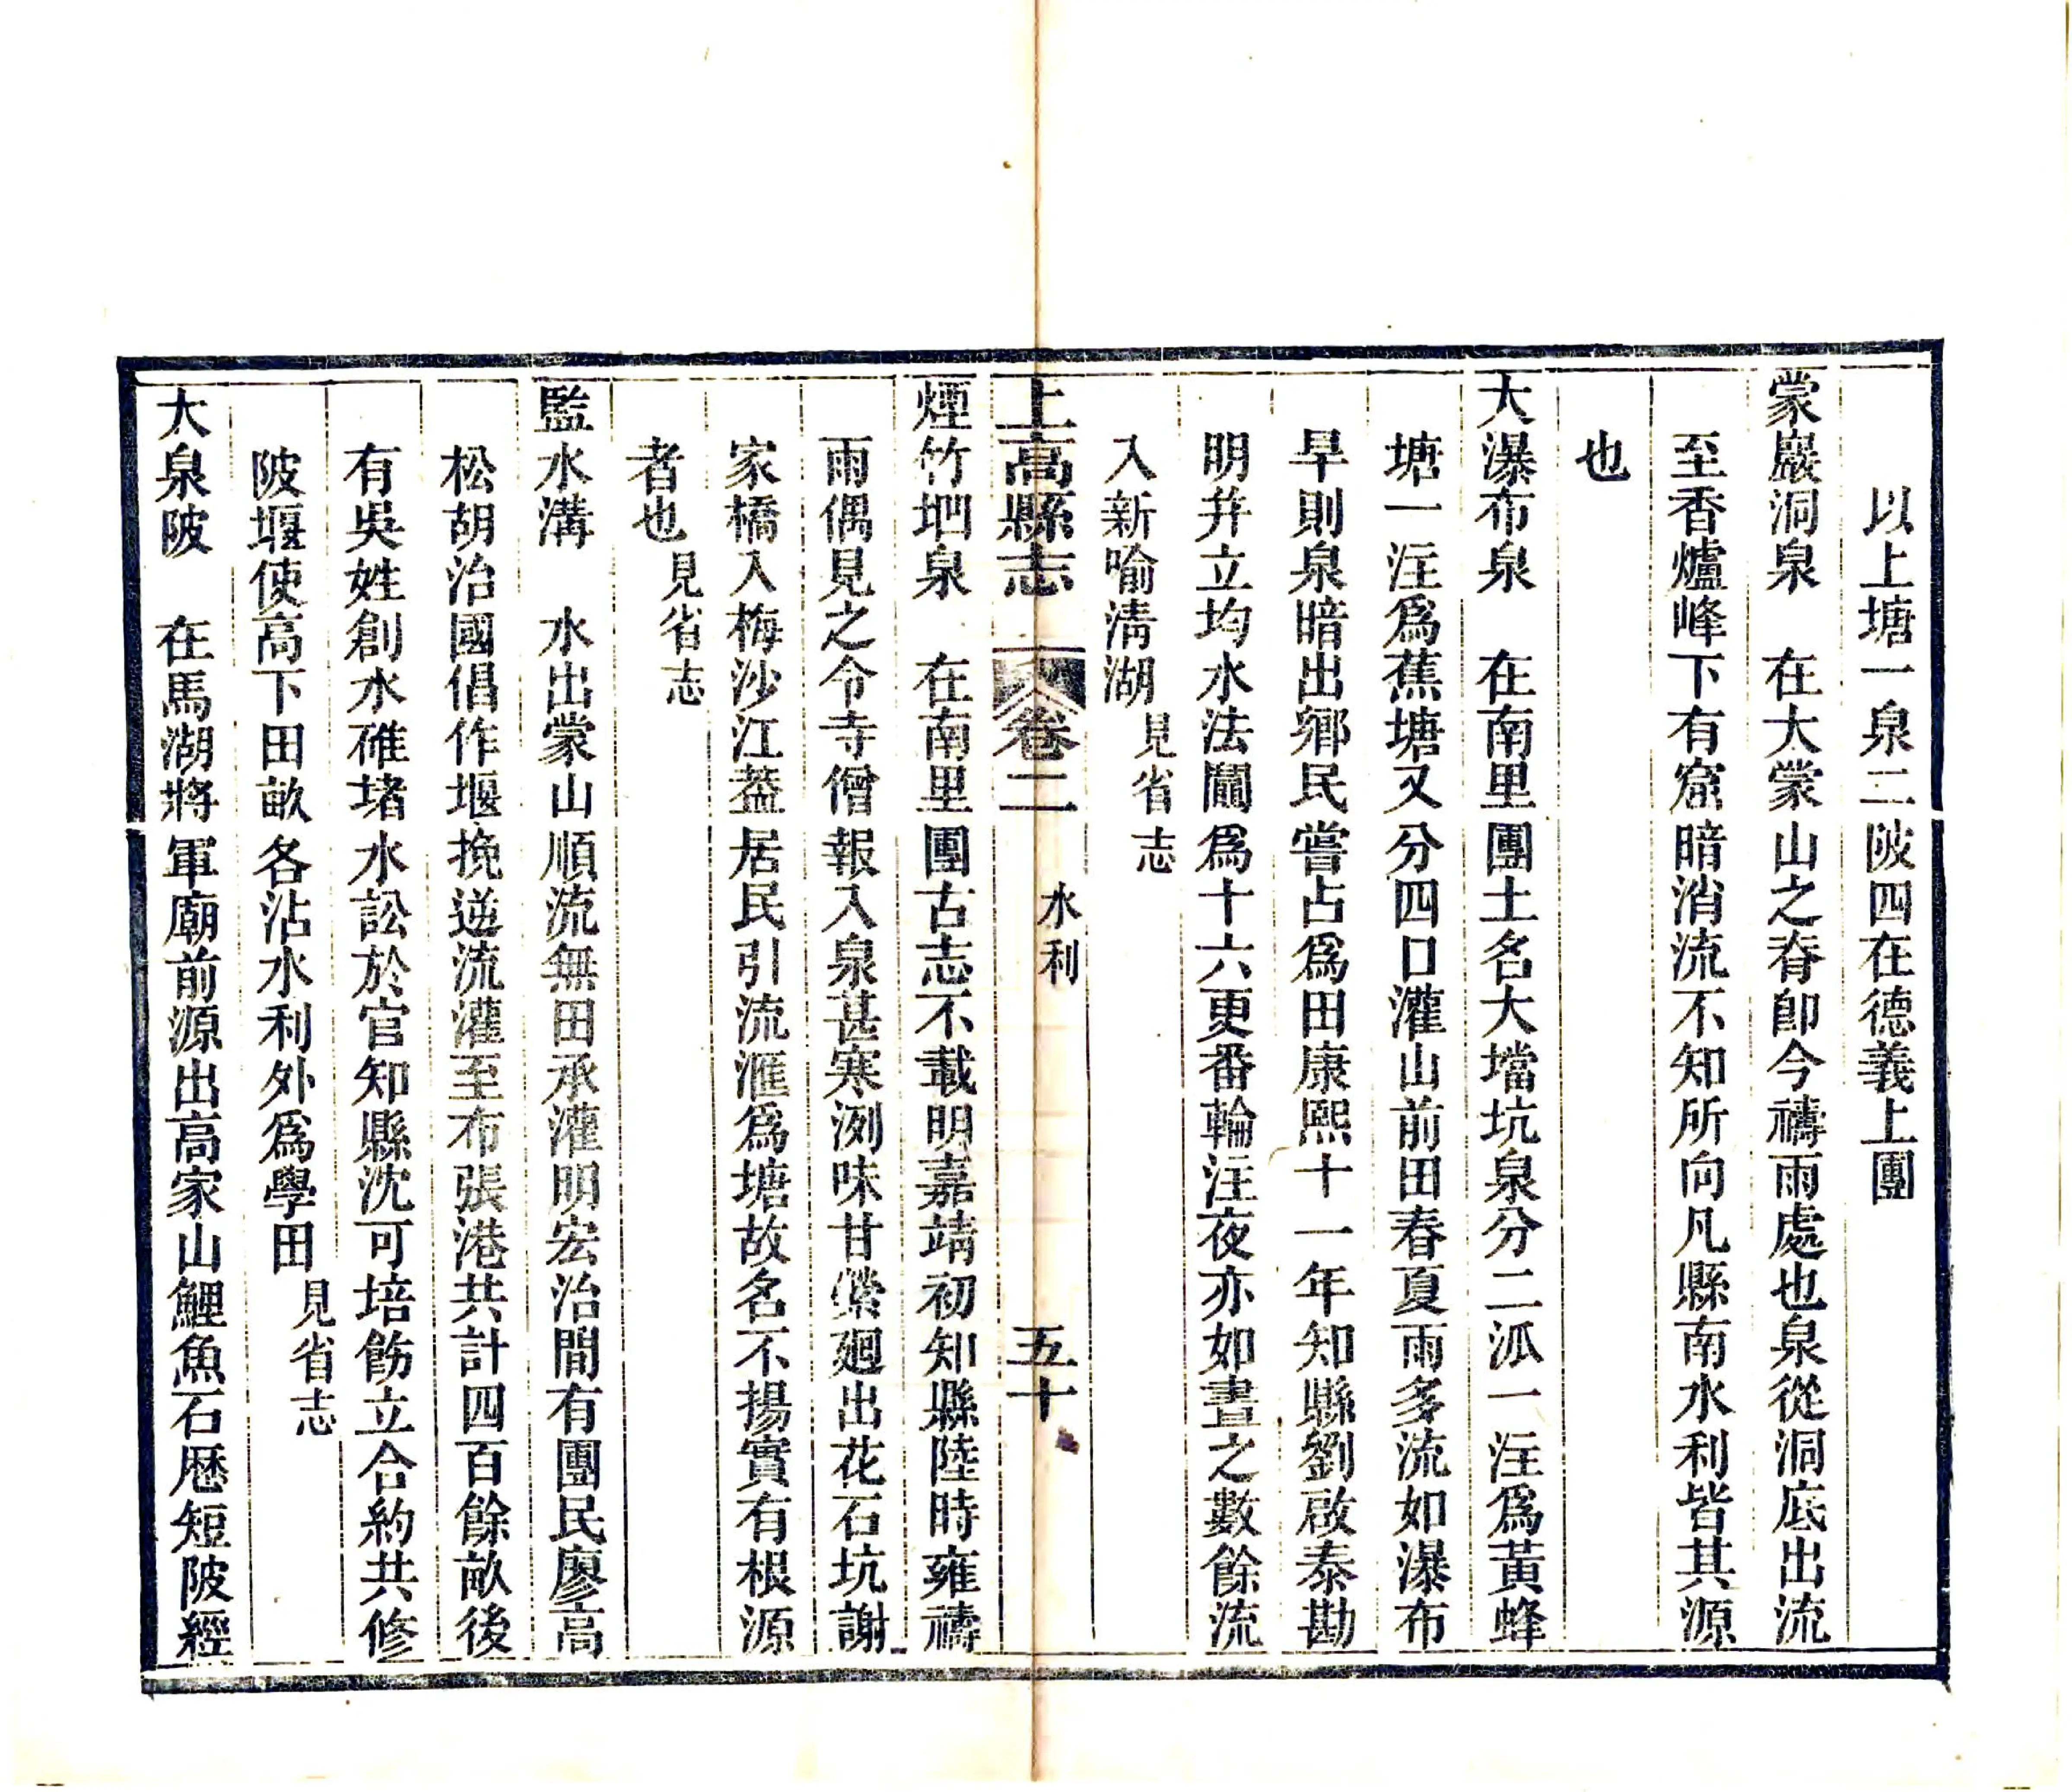 以上塘一泉二陂四在德義上團
蒙巖洞泉　在大蒙山之脊卽今禱雨處也泉從洞底出流
至香爐峰下有窟暗消流不知所向凡縣南水利皆其源
也
大瀑布泉　在南里團土名大壋坑泉分二派一注爲黃蜂
塘一注爲蕉塘又分四口灌山前田春夏雨多流如瀑布
旱則泉暗出鄉民嘗占爲田康熙十一年知縣劉啟泰勘
明并立均水法鬮爲十六更番輪注夜亦如晝之數餘流
入新喻淸湖見省志
上高縣志　卷二　水利　五十
煙竹垇泉　在南里團古志不載明嘉靖初知縣陸時雍禱
雨偶見之令寺僧報入泉甚寒洌味甘縈廻出花石坑謝
家橋入梅沙江葢居民引流滙爲塘故名不揚實有根源
者也見省志
監水溝　水出蒙山順流無田承灌明宏治間有團民廖高
松胡治國倡作堰挽逆流灌至布張港共計四百餘畝後
有吳姓創水碓堵水訟於官知縣沈可培飭立合約共修
陂堰使高下田畝各沾水利外爲學田見省志
大泉陂　在馬湖將軍廟前源出高家山鯉魚石歷短陂經